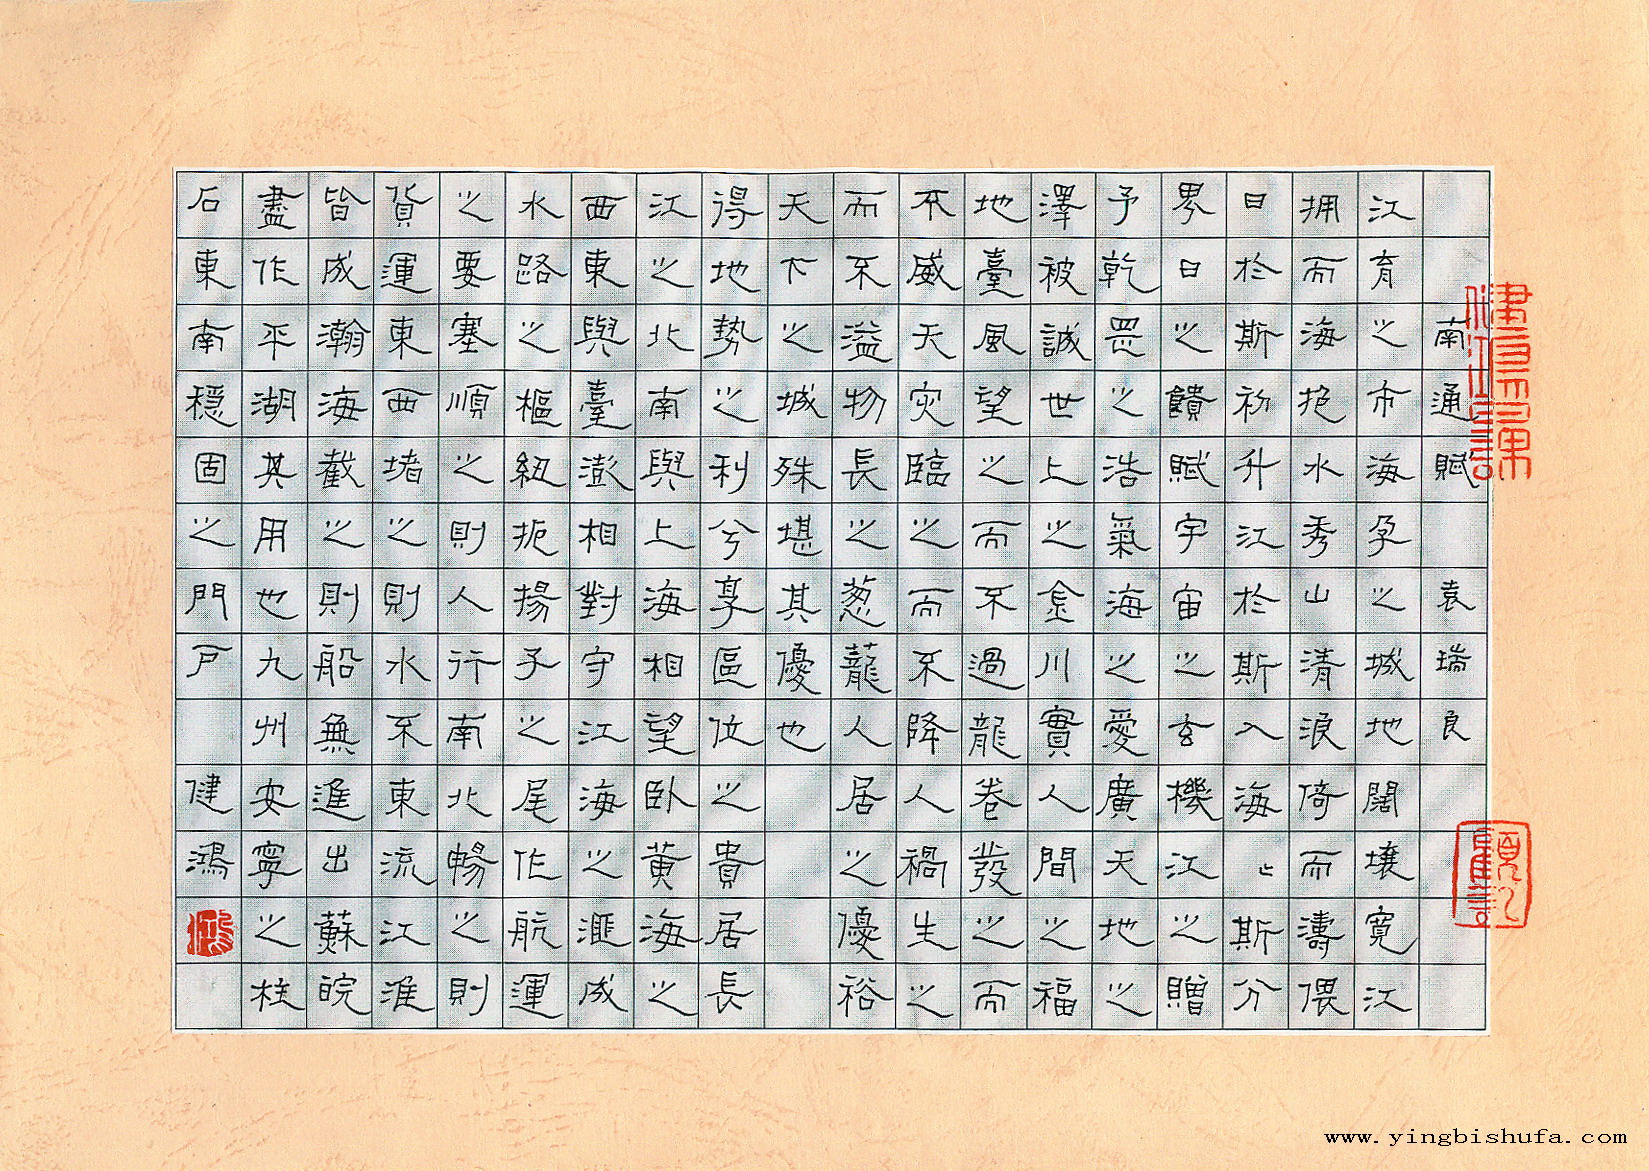 南通賦 袁瑞良
江育之市海孕之城地闊壤寬江
拥而海抱水秀山清浪倚而濤偎
日於斯初升江於斯入海斯分
界日之饋賦宇宙之玄機江之贈
予乾罡之浩氣海之愛廣天地之
澤被誠世上之金川實人間之福
地臺風望之而不過龍卷發之而
不威天灾臨之而不降人禍生之
而不溢物長之葱蘢人居之優裕
天下之城殊堪其優也
得地勢之利兮享區位之貴居長
江之北南與上海相望卧黄海之
西東與臺澎相對守江海之滙成
水路之樞紐扼揚子之尾作航運
之要塞順之則人行南北暢之則
貨運東西堵之則水不東流江淮
皆成瀚海截之則船無進出蘇皖
盡作平湖其用也九州安寧之柱
石東南穩固之門户 健鴻
www.yingbishufa.com